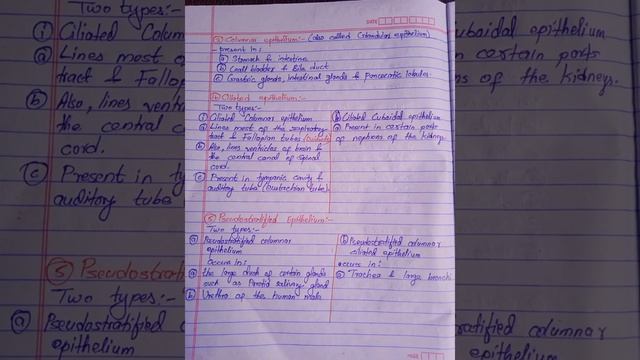 DATE
③ Columnar epithelium:- (also called Glandular epithelium)
- present in:
ⓐ Stomach & intestine
ⓑ Gall bladder & Bile duct
ⓒ Gastric glands, Intestinal glands & Pancreatic lobules.
④ Ciliated epithelium:-
Two types:-
① Ciliated Columnar epithelium
ⓐ Lines most of the respiratory
tract & Fallopian tubes
ⓑ Also, lines ventricles of brain &
the central canal of spinal
cord.
ⓒ Present in tympanic cavity &
auditory tube (Eustachian tube).
ⓑ Ciliated Cuboidal epithelium
ⓐ Present in certain parts
of nephrons of the kidneys.
⑤ Pseudostratified Epithelium:-
Two types:-
ⓐ Pseudostratified columnar
epithelium
Occurs in:
ⓐ the large duct of certain glands
such as Parotid salivary gland
ⓑ Urethra of the human male
ⓑ Pseudostratified columnar
ciliated epithelium
occurs in:
ⓐ Trachea & large bronchi
PAGE
Two types:-
① Ciliated Colum
ⓐ Lines most o
tract & Fallop
ⓑ Also, lines ventri
the central ca
cord.
ⓒ Present in ty
auditory tube
⑤ Pseudostrati
Two types:-
ⓐ Pseudostratified c
epithelium
uboidal epithelium
n certain parts
s of the kidneys.
ratified columnar
epithelium